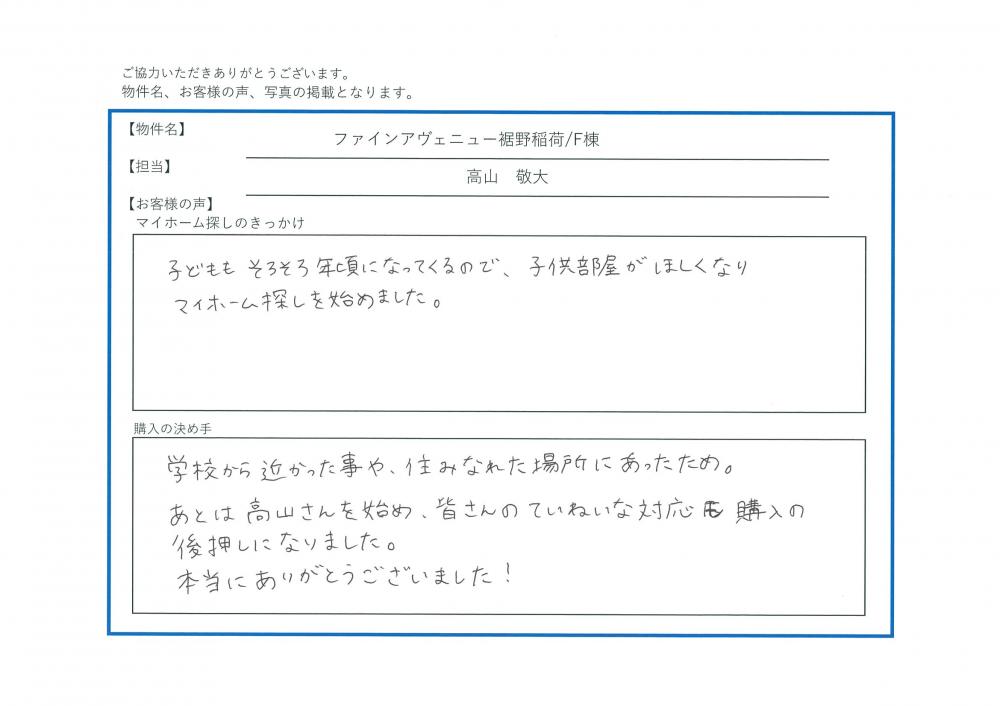 ご協力いただきありがとうございます。
物件名、お客様の声、写真の掲載となります。
【物件名】 ファインアヴェニュー裾野稲荷/F棟
【担当】 高山　敬大
【お客様の声】
マイホーム探しのきっかけ
子どもも そろそろ 年頃になってくるので、子供部屋が ほしくなり
マイホーム探しを始めました。
購入の決め手
学校から 近かった事や、住みなれた場所に あったため。
あとは 高山さんを始め、皆さんの ていねいな対応も 購入の
後押しになりました。
本当に ありがとうございました！